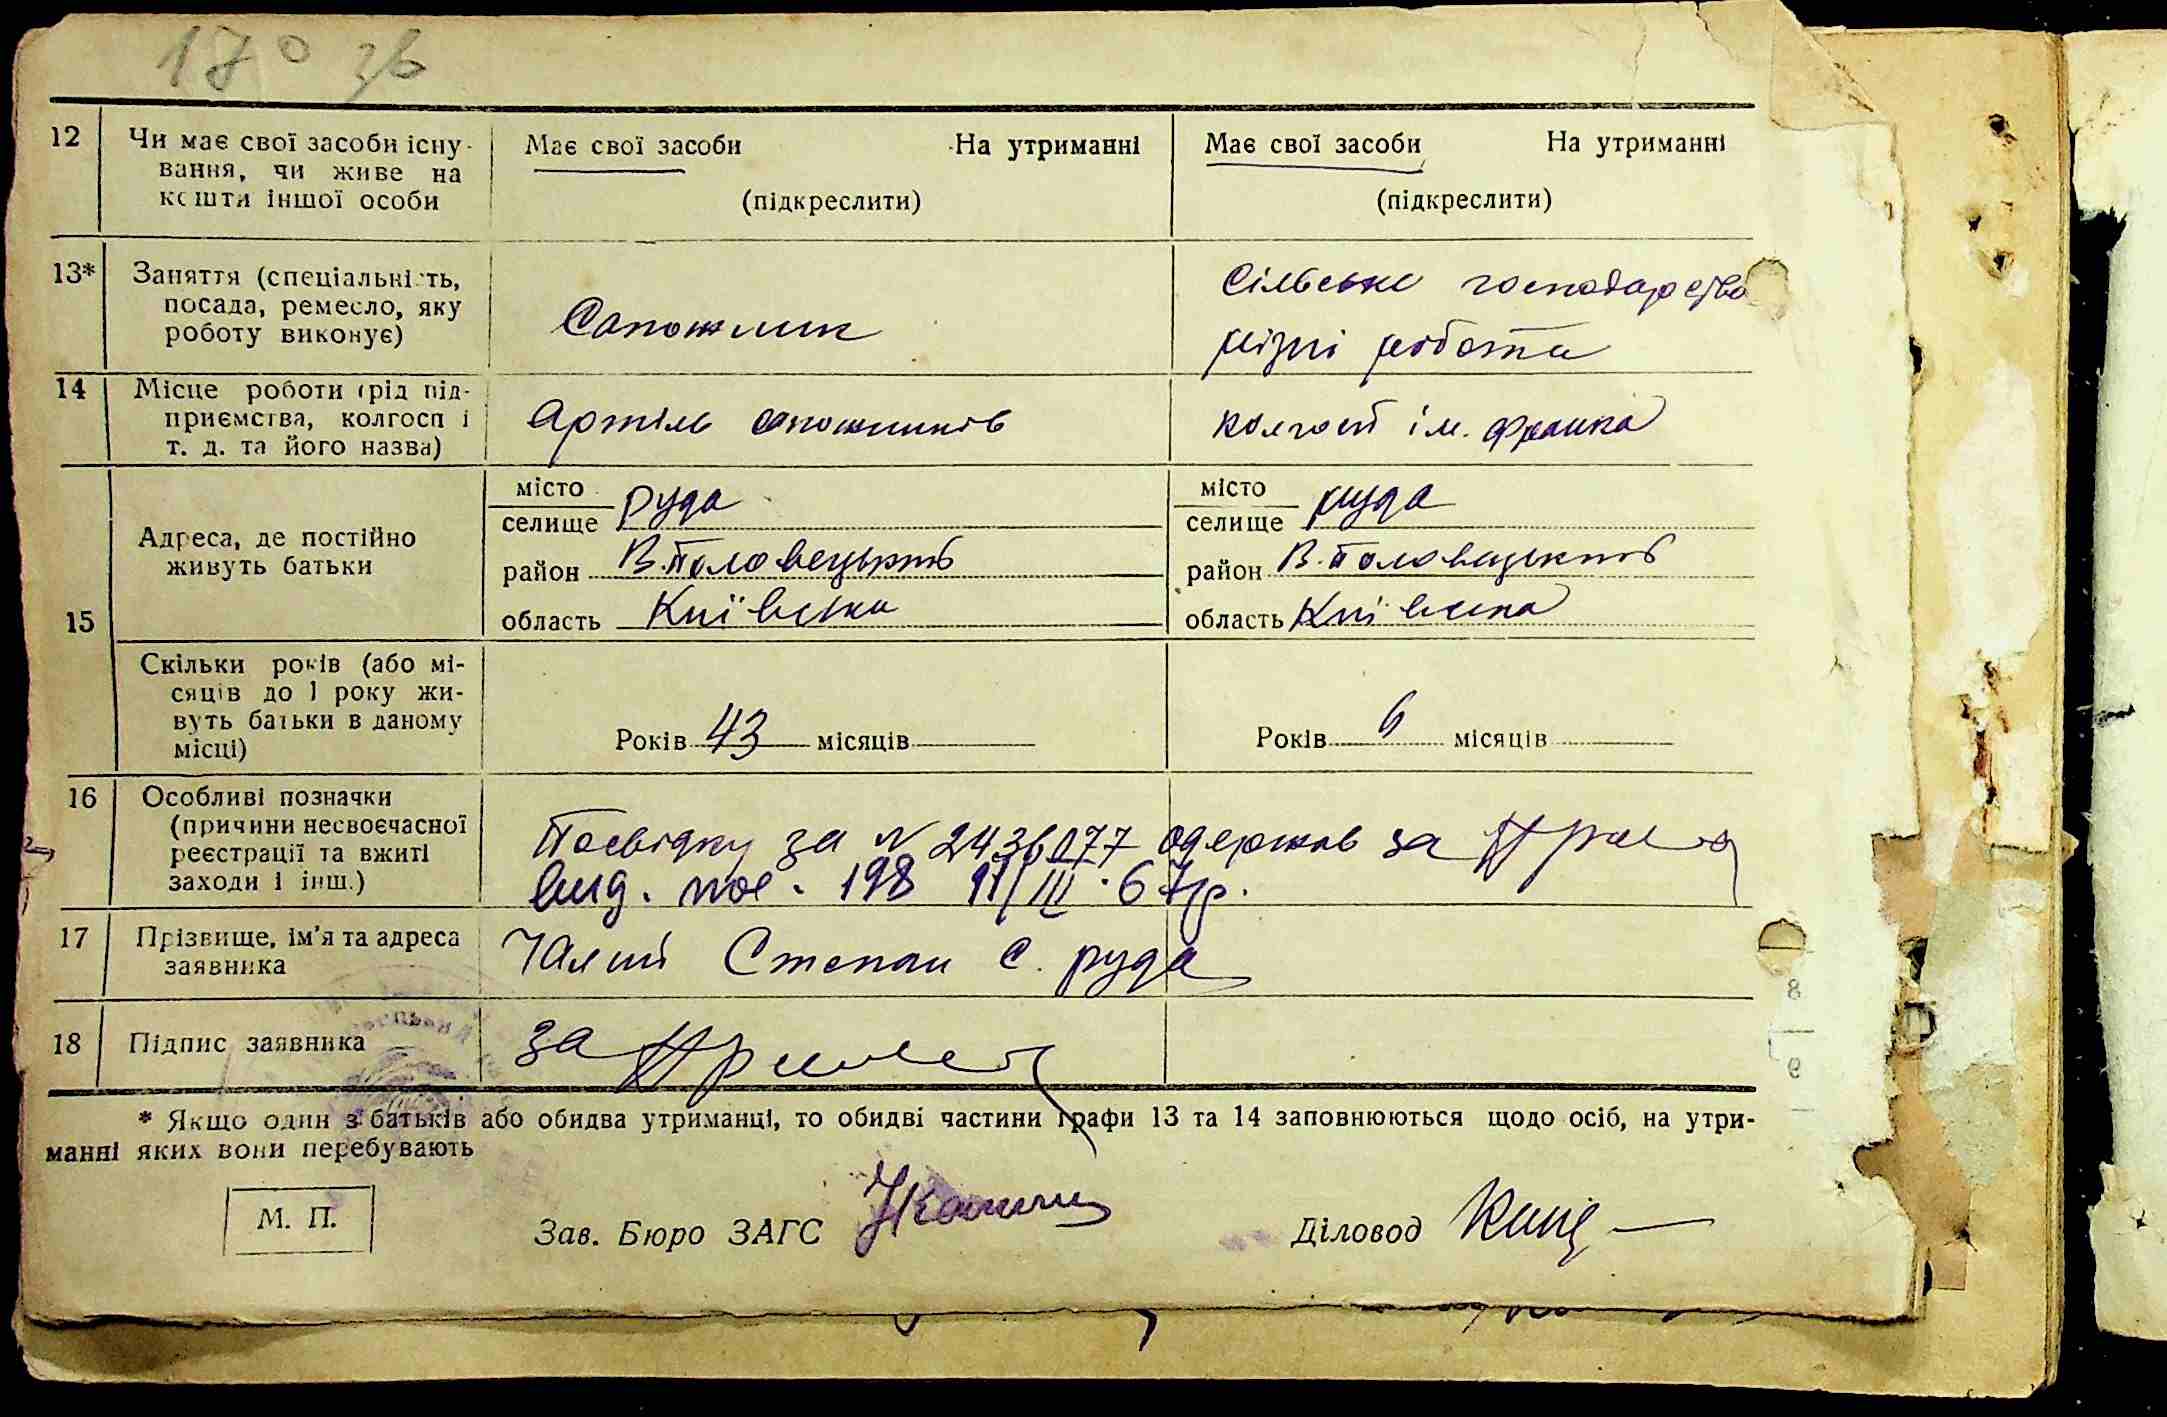 170 зв
12 Чи має свої засоби існу-
вання, чи живе на
кошти іншої особи
Має свої засоби На утриманні
(підкреслити)
Має свої засоби На утриманні
(підкреслити)
13* Заняття (спеціальність,
посада, ремесло, яку
роботу виконує)
Сапожник
Сільське господарство
різні роботи
14 Місце роботи (рід під-
приємства, колгосп і
т. д. та його назва)
Артіль сапожників
колгосп ім. Франка
15 Адреса, де постійно
живуть батьки
місто
селище Руда
район В.Половецький
область Київська
місто
селище Руда
район В.Половецький
область Київська
Скільки років (або мі-
сяців до 1 року жи-
вуть батьки в даному
місці)
Років 43 місяців
Років 6 місяців
16 Особливі позначки
(причини несвоєчасної
реєстрації та вжиті
заходи і інш.)
Посвідку за № 2436077 одержав за
вид. пов. 198 11/III.67р.
17 Прізвище, ім'я та адреса
заявника
Степан с. Руда
18 Підпис заявника
за
* Якщо один з батьків або обидва утриманці, то обидві частини графи 13 та 14 заповнюються щодо осіб, на утри-
манні яких вони перебувають
М. П.
Зав. Бюро ЗАГС
Діловод